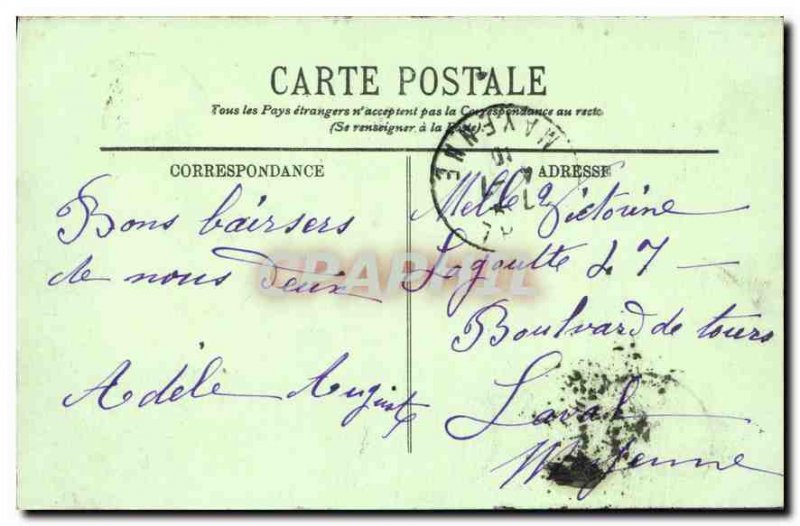 CARTE POSTALE
Tous les Pays étrangers n'acceptent pas la Correspondance au recto
(Se renseigner à la Poste)
CORRESPONDANCE
ADRESSE
MAYENNE
Bons bairsers
de nous Deux
Adèle Auguste
Melle Victorine
Lagoutte 27
Boulvard de tours
Laval
Mayenne